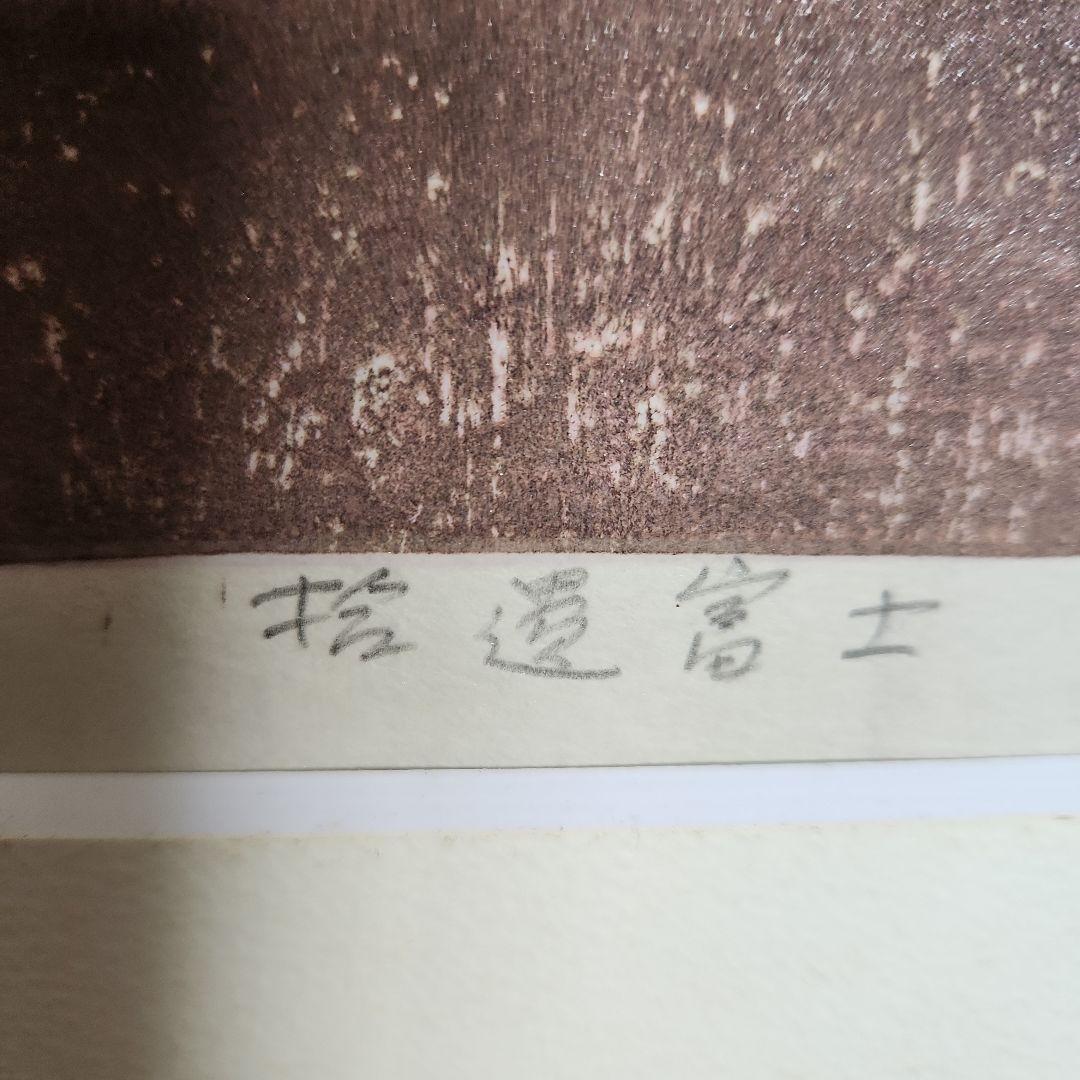 拾遺富士